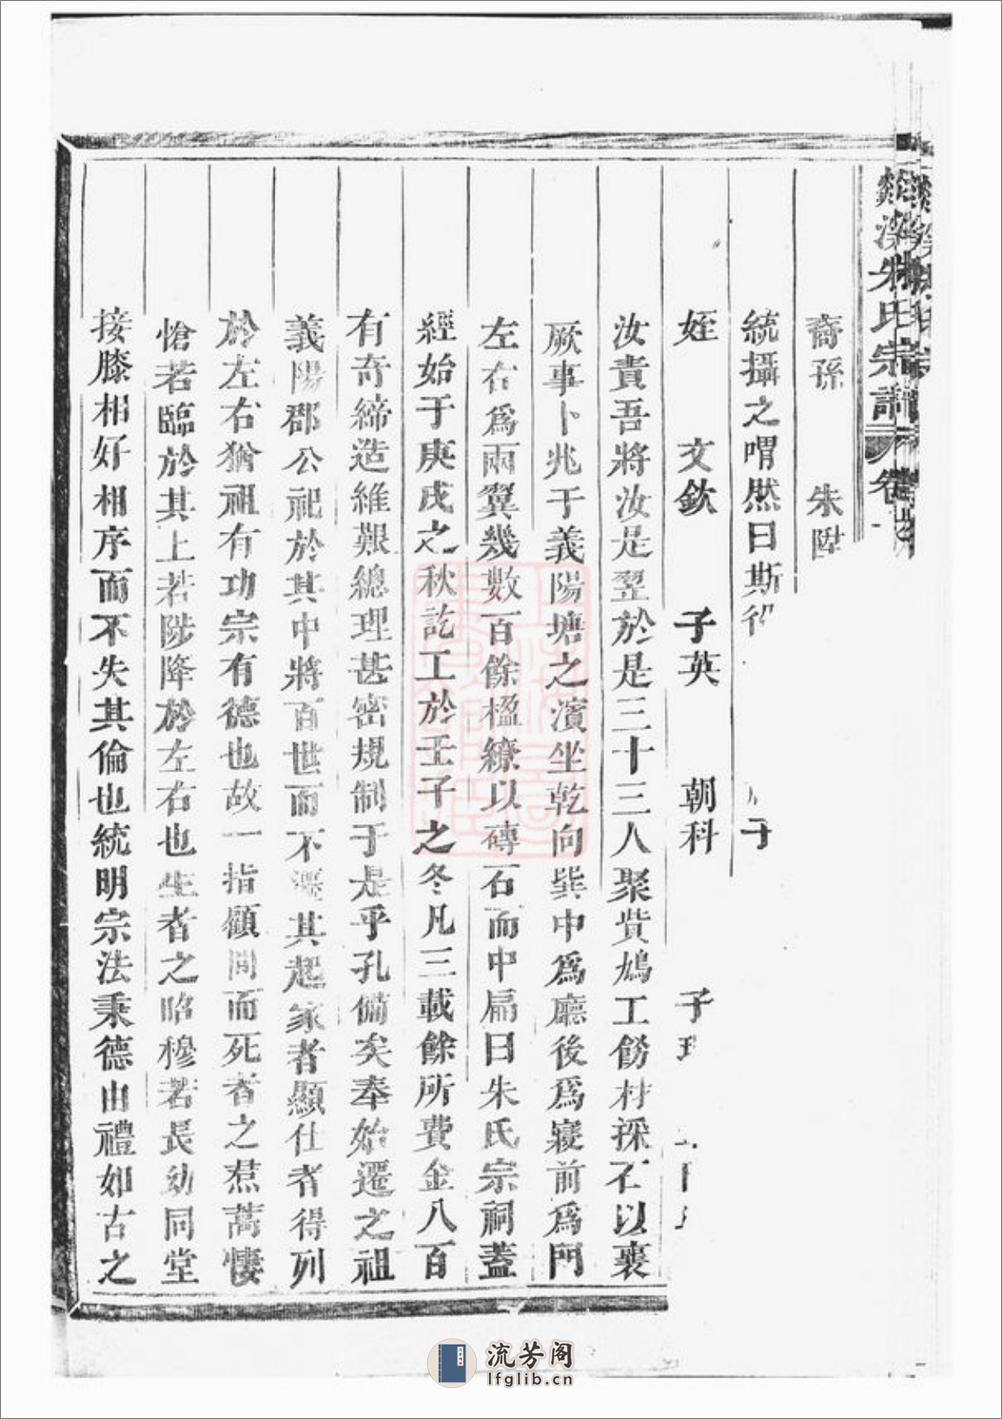 朱氏宗譜 卷
裔孫 朱陞
統攝之喟然曰斯役 于
姪 文欽 子英 朝科 子
汝責吾將汝是翌於是三十三人聚貲鳩工飭材採石以襄
厥事卜兆于義陽塘之濱坐乾向巽中爲廳後爲寢前爲門
左右爲兩翼幾數百餘楹繚以磚石而中扁曰朱氏宗祠蓋
經始于庚戌之秋訖工於壬子之冬凡三載餘所費金八百
有奇締造維艱總理甚密規制于是乎孔備矣奉始遷之祖
義陽郡公祀於其中將百世而不遷其起家者顯仕者得列
於左右猶祖有功宗有德也故一指顧間而死者之焄蒿悽
愴若臨於其上若陟降於左右也生者之昭穆若長幼同堂
接膝相好相序而不失其倫也統明宗法秉德由禮如古之
流芳阁
lfglib.cn